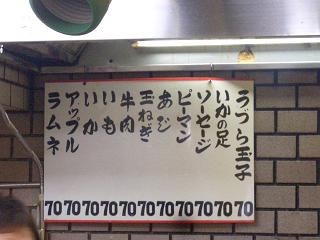 うづら玉子 70
いかの足 70
ソーセージ 70
ピーマン 70
あじ 70
玉ねぎ 70
牛肉 70
いも 70
いか 70
アップル 70
ラムネ 70